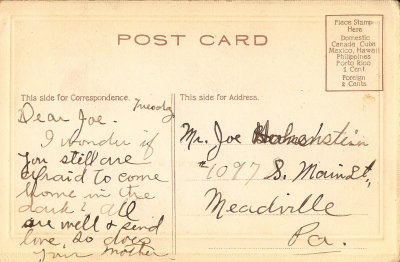 POST CARD
Place Stamp
Here
Domestic
Canada Cuba
Mexico, Hawaii
Philippines
Porto Rico
1 Cent
Foreign
2 Cents
This side for Correspondence.
Tuesday
Dear Joe.
I wonder if
you still are
afraid to come
home in the
dark? All
are well & send
love, so does
your mother
This side for Address.
Mr. Joe
1097 S. Main St,
Meadville
Pa.